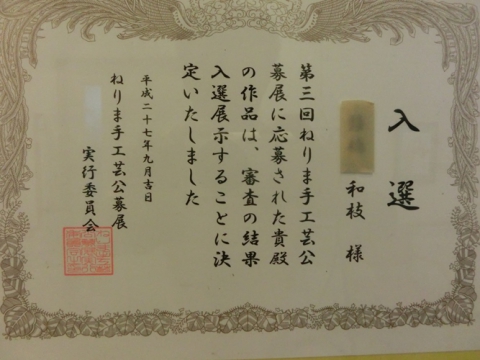 入選
和枝 様
第三回ねりま手工芸公
募展に応募された貴殿
の作品は、審査の結果
入選展示することに決
定いたしました
平成二十七年九月吉日
ねりま手工芸公募展
実行委員会